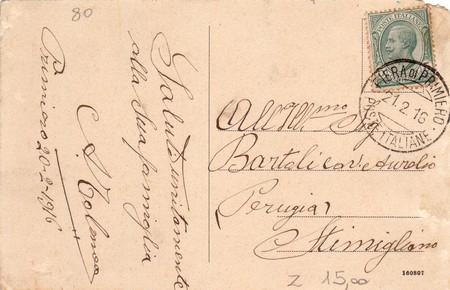 80
Saluti unitamente
alla Sua famiglia
A. Colonna
Primiero 20-2-1916
POSTE ITALIANE
FIERA DI PRIMIERO
21.2.16
POSTE ITALIANE
All'Ill.mo Sig.
Bartoli cav. Aurelio
Perugia
Stimigliano
160807
Z 15,00